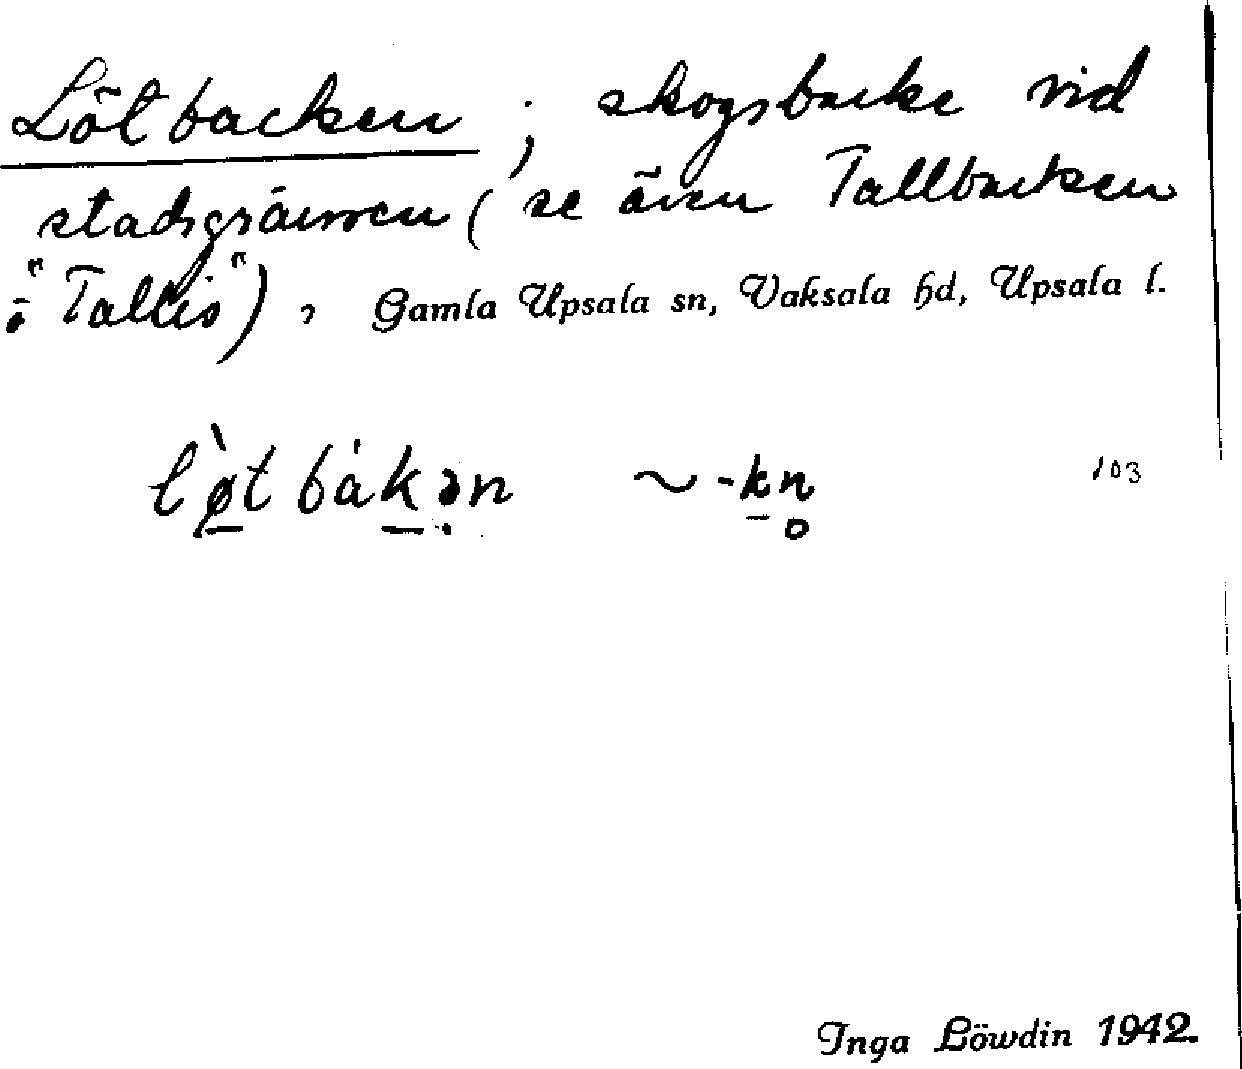 Lötbacken ; skogsbacke vid
stadsgränsen ( se även Tallbacken
o "Tallis") , Gamla Upsala sn, Vaksala hd, Upsala l.
lø̀t bák̠ən ~ -k̠n̥ 103
Inga Löwdin 1942.